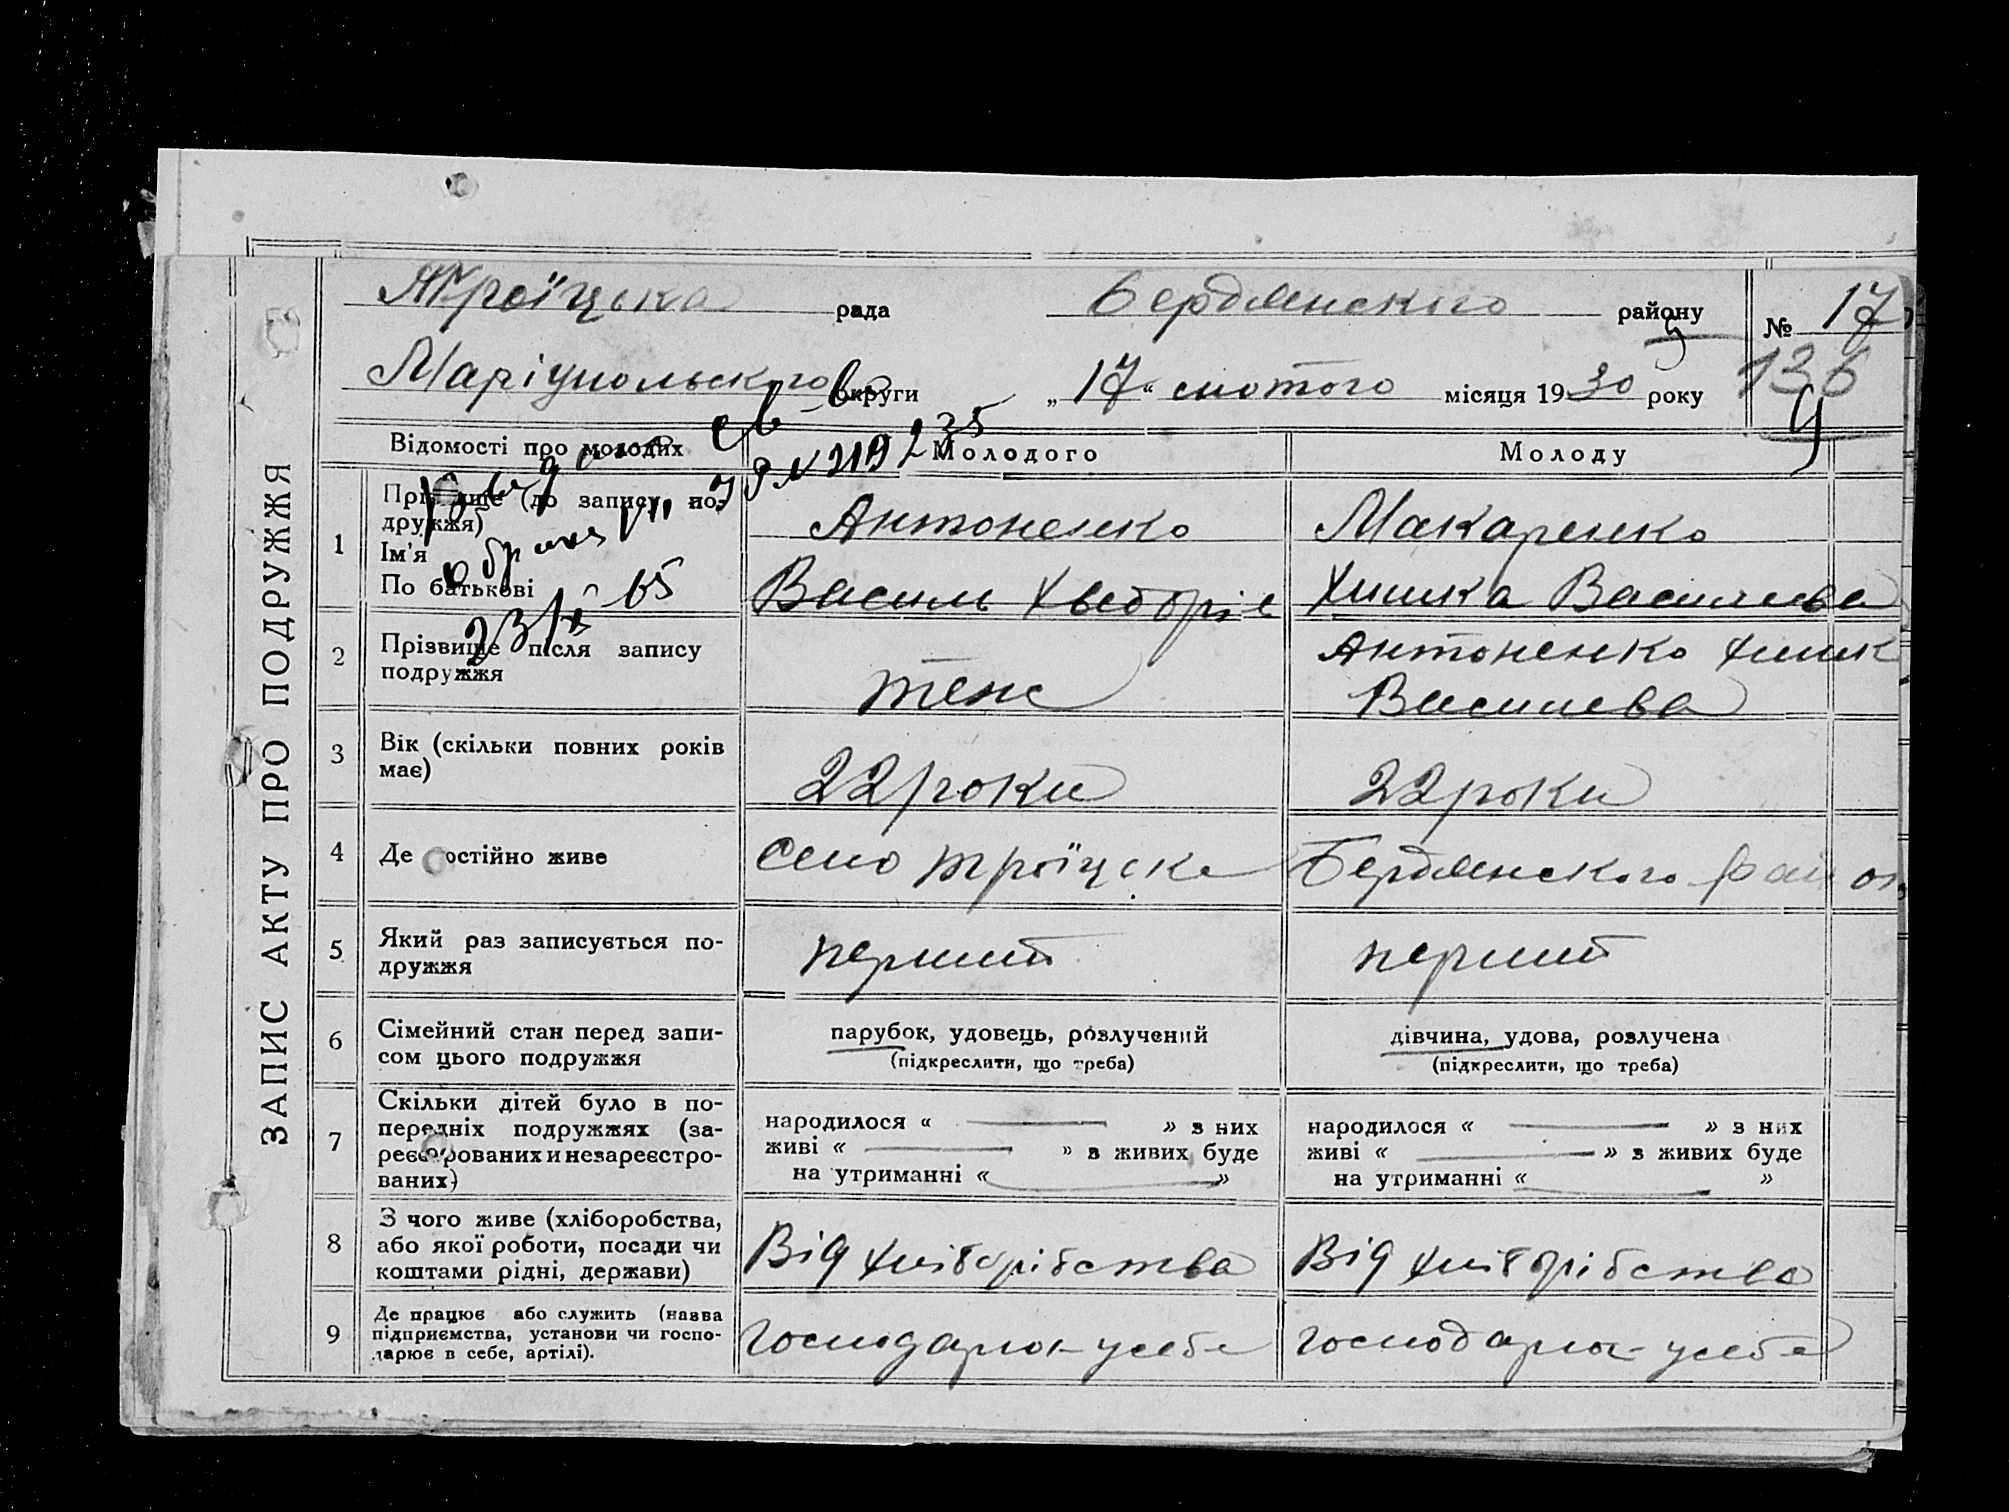 ЗАПИС АКТУ ПРО ПОДРУЖЖЯ
Троїцька рада Бердянского району № 17
136
Маріупольського округи „17“ лютого місяця 1930 року
Відомості про молодих Молодого Молоду
№ 219235
о браке
23/X 65
1 Прізвище (до запису подружжя) Антоненко Макаренко
Ім'я
По батькові Василь Хведоріє Химка Василева
2 Прізвище після запису Антоненко Химк
подружжя теж Василева
3 Вік (скільки повних років
має) 22 роки 22 роки
4 Де постійно живе Село Троїцьке Бердянского
5 Який раз записується по-
дружжя перший перший
6 Сімейний стан перед запи- парубок, удовець, розлучений дівчина, удова, розлучена
сом цього подружжя (підкреслити, що треба) (підкреслити, що треба)
7 Скільки дітей було в по-
передніх подружжях (за- народилося « » з них народилося « » з них
реєстрованих и незареєстро- живі « » з живих буде живі « » з живих буде
ваних) на утриманні « » на утриманні « »
8 З чого живе (хліборобства,
або якої роботи, посади чи Від хліборібства Від хліборібства
коштами рідні, держави)
9 Де працює або служить (назва
підприємства, установи чи госпо- господарює усебе господарює усебе
дарює в себе, артілі).